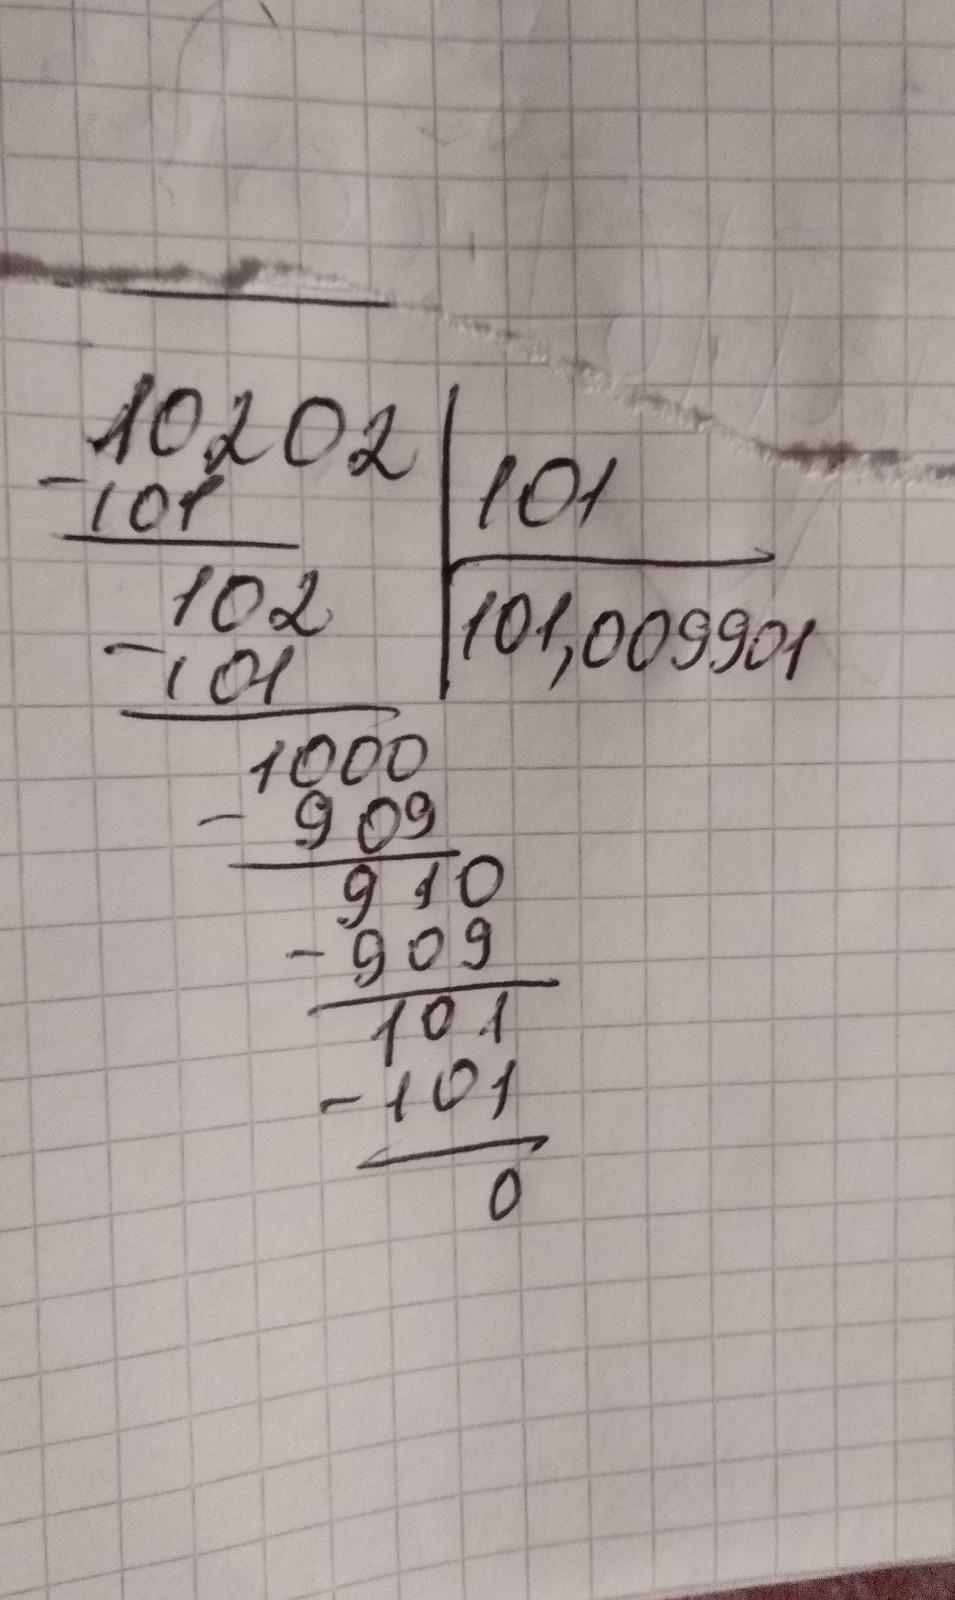 10202 101
-101 101,009901
102
-101
1000
-909
910
-909
101
-101
0